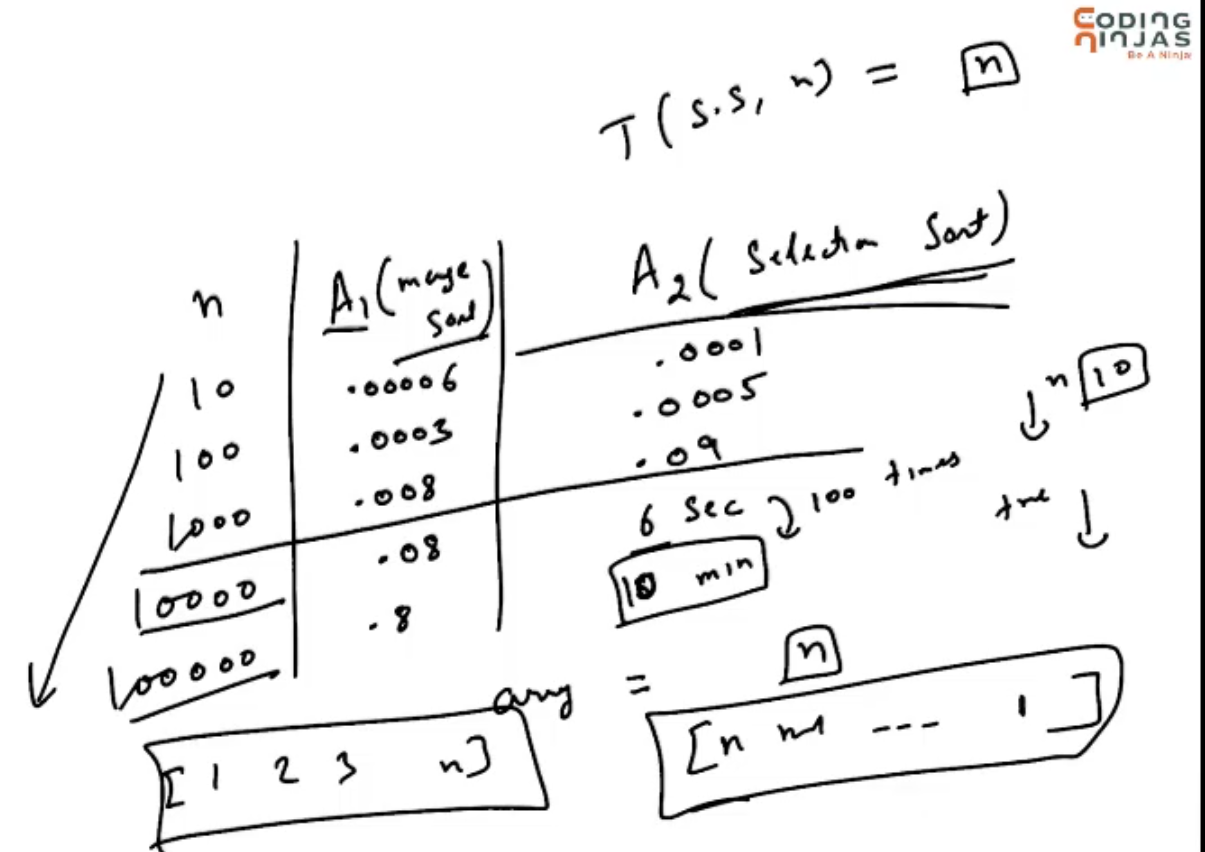 CODING
NINJAS
Be A Ninja
T(S.S, n) = n
n A1(merge Sort) A2(Selection Sort)
10 .00006 .0001
100 .0003 .0005
1000 .008 .09
10000 .08 6 Sec 100 times
100000 .8 10 min
n 10
time
array = n
[1 2 3 n]
[n n-1 --- 1]